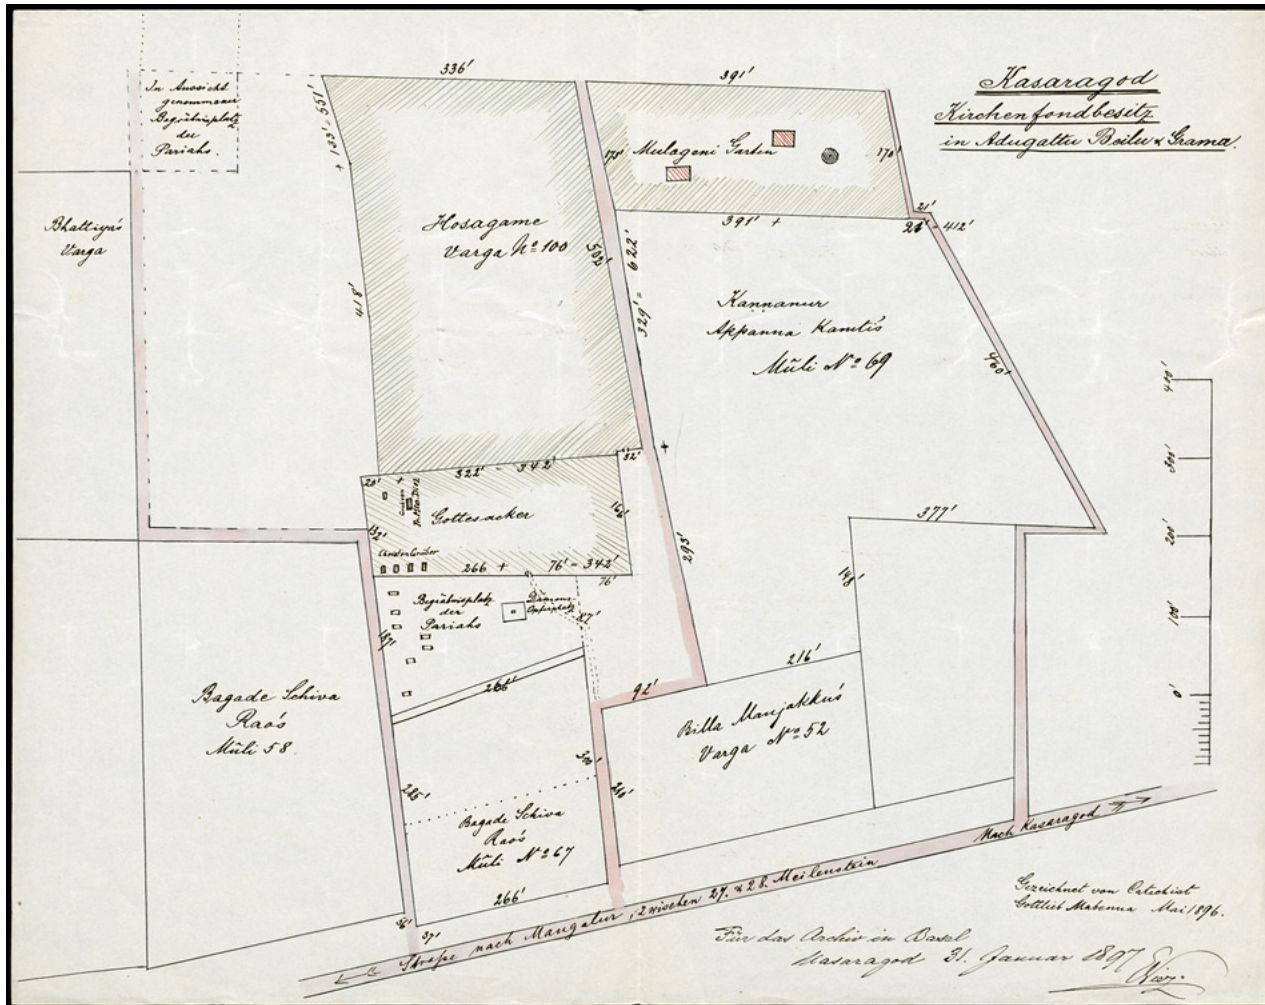 Kasaragod
Kirchenfondbesitz
in Adugattu Beilu & Grama.
336'
391'
In Aussicht
genommener
Begräbnisplatz
der
Pariahs.
+ 133' = 551'
175'
Mulageni Garten
170'
21'
391' +
21' = 412'
Bhattiya's
Varga
Hosagame
Varga No 100
502'
329' = 622'
418'
Kannanur
Appanna Kamtis
Mūli No 69
460'
400'
300'
200'
100'
0'
32'
+
322' = 342'
20' +
Gottesacker
132'
Christen Gräber
266 +
76' = 342'
76'
293'
377'
148'
Begräbnisplatz
der
Pariahs
Dämonen
Opferplatz
87'
187'
266'
92'
216'
Bagade Schiva
Rao's
Mūli 58.
Billa Manjakku's
Varga No 52
285'
210'
Bagade Schiva
Rao's
Mūli No 67
266'
37'
Strasse nach Mangalur, zwischen 27. & 28. Meilenstein
Nach Kasaragod
Gezeichnet von Catechist
Gottlieb Mabenna Mai 1896.
Für das Archiv in Basel
Kasaragod 31. Januar 1897